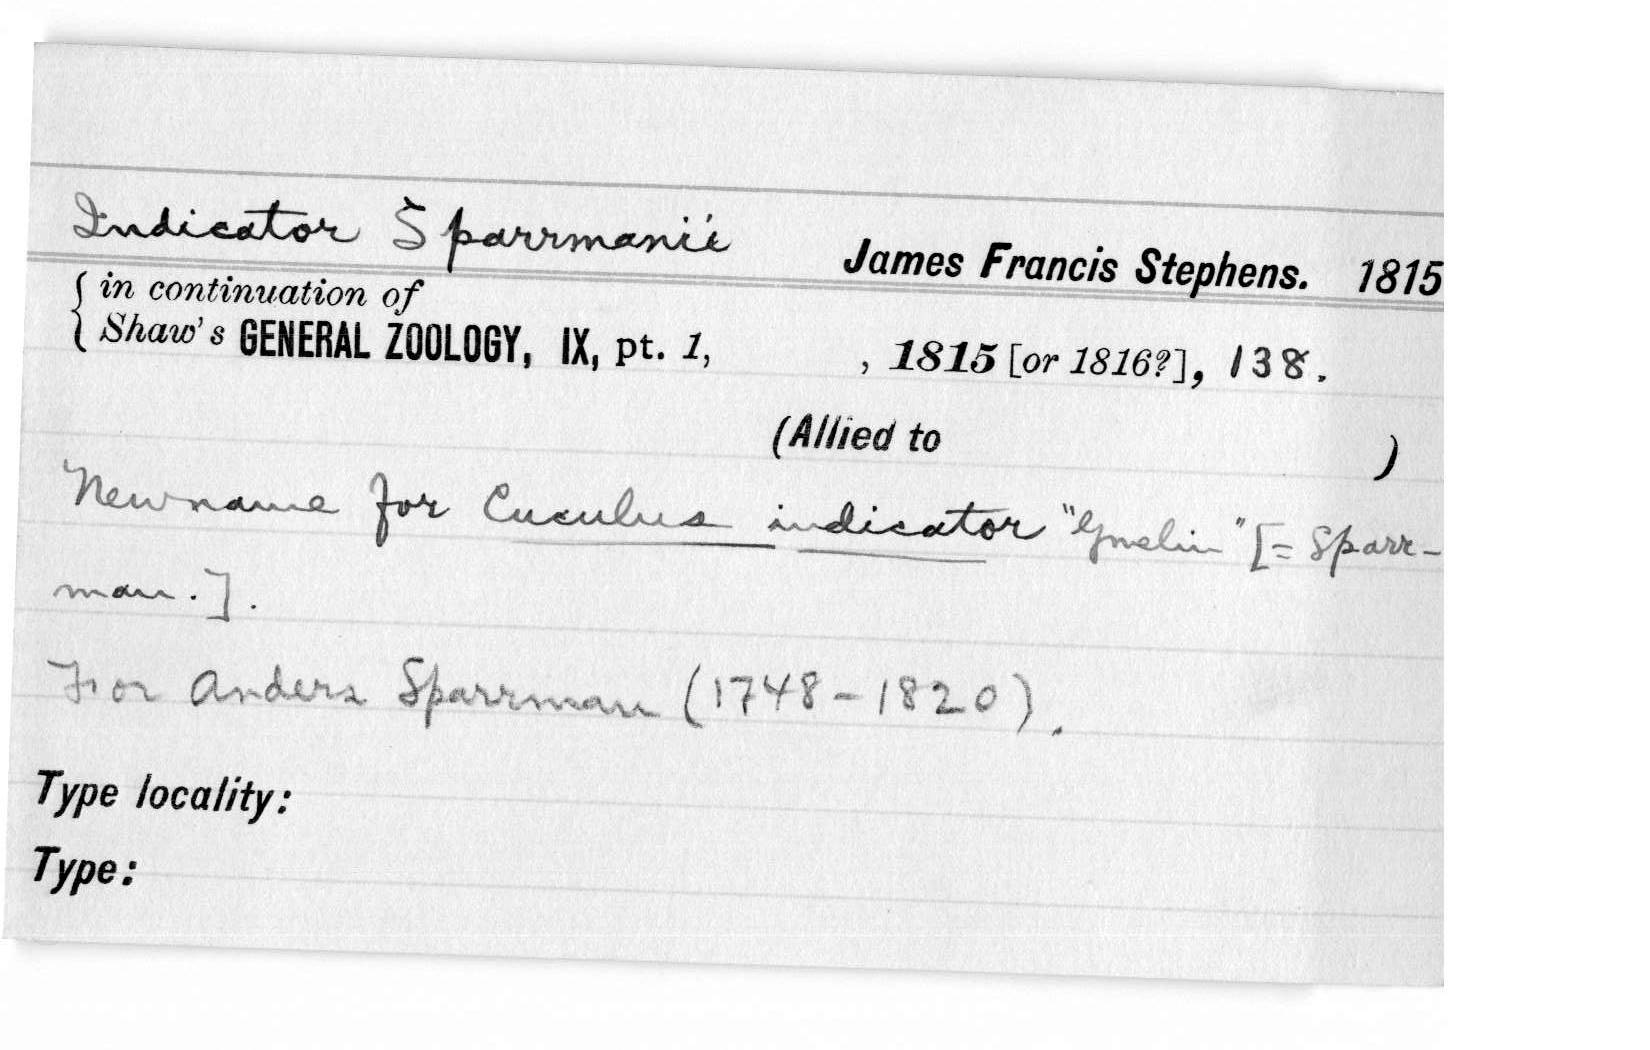 Indicator Sparrmanii James Francis Stephens. 1815
{ in continuation of
Shaw's GENERAL ZOOLOGY, IX, pt. 1, , 1815 [or 1816?], 138.
(Allied to )
New name for Cuculus indicator "Gmelin" [= Sparr-
man.].
For Anders Sparrman (1748-1820).
Type locality:
Type: